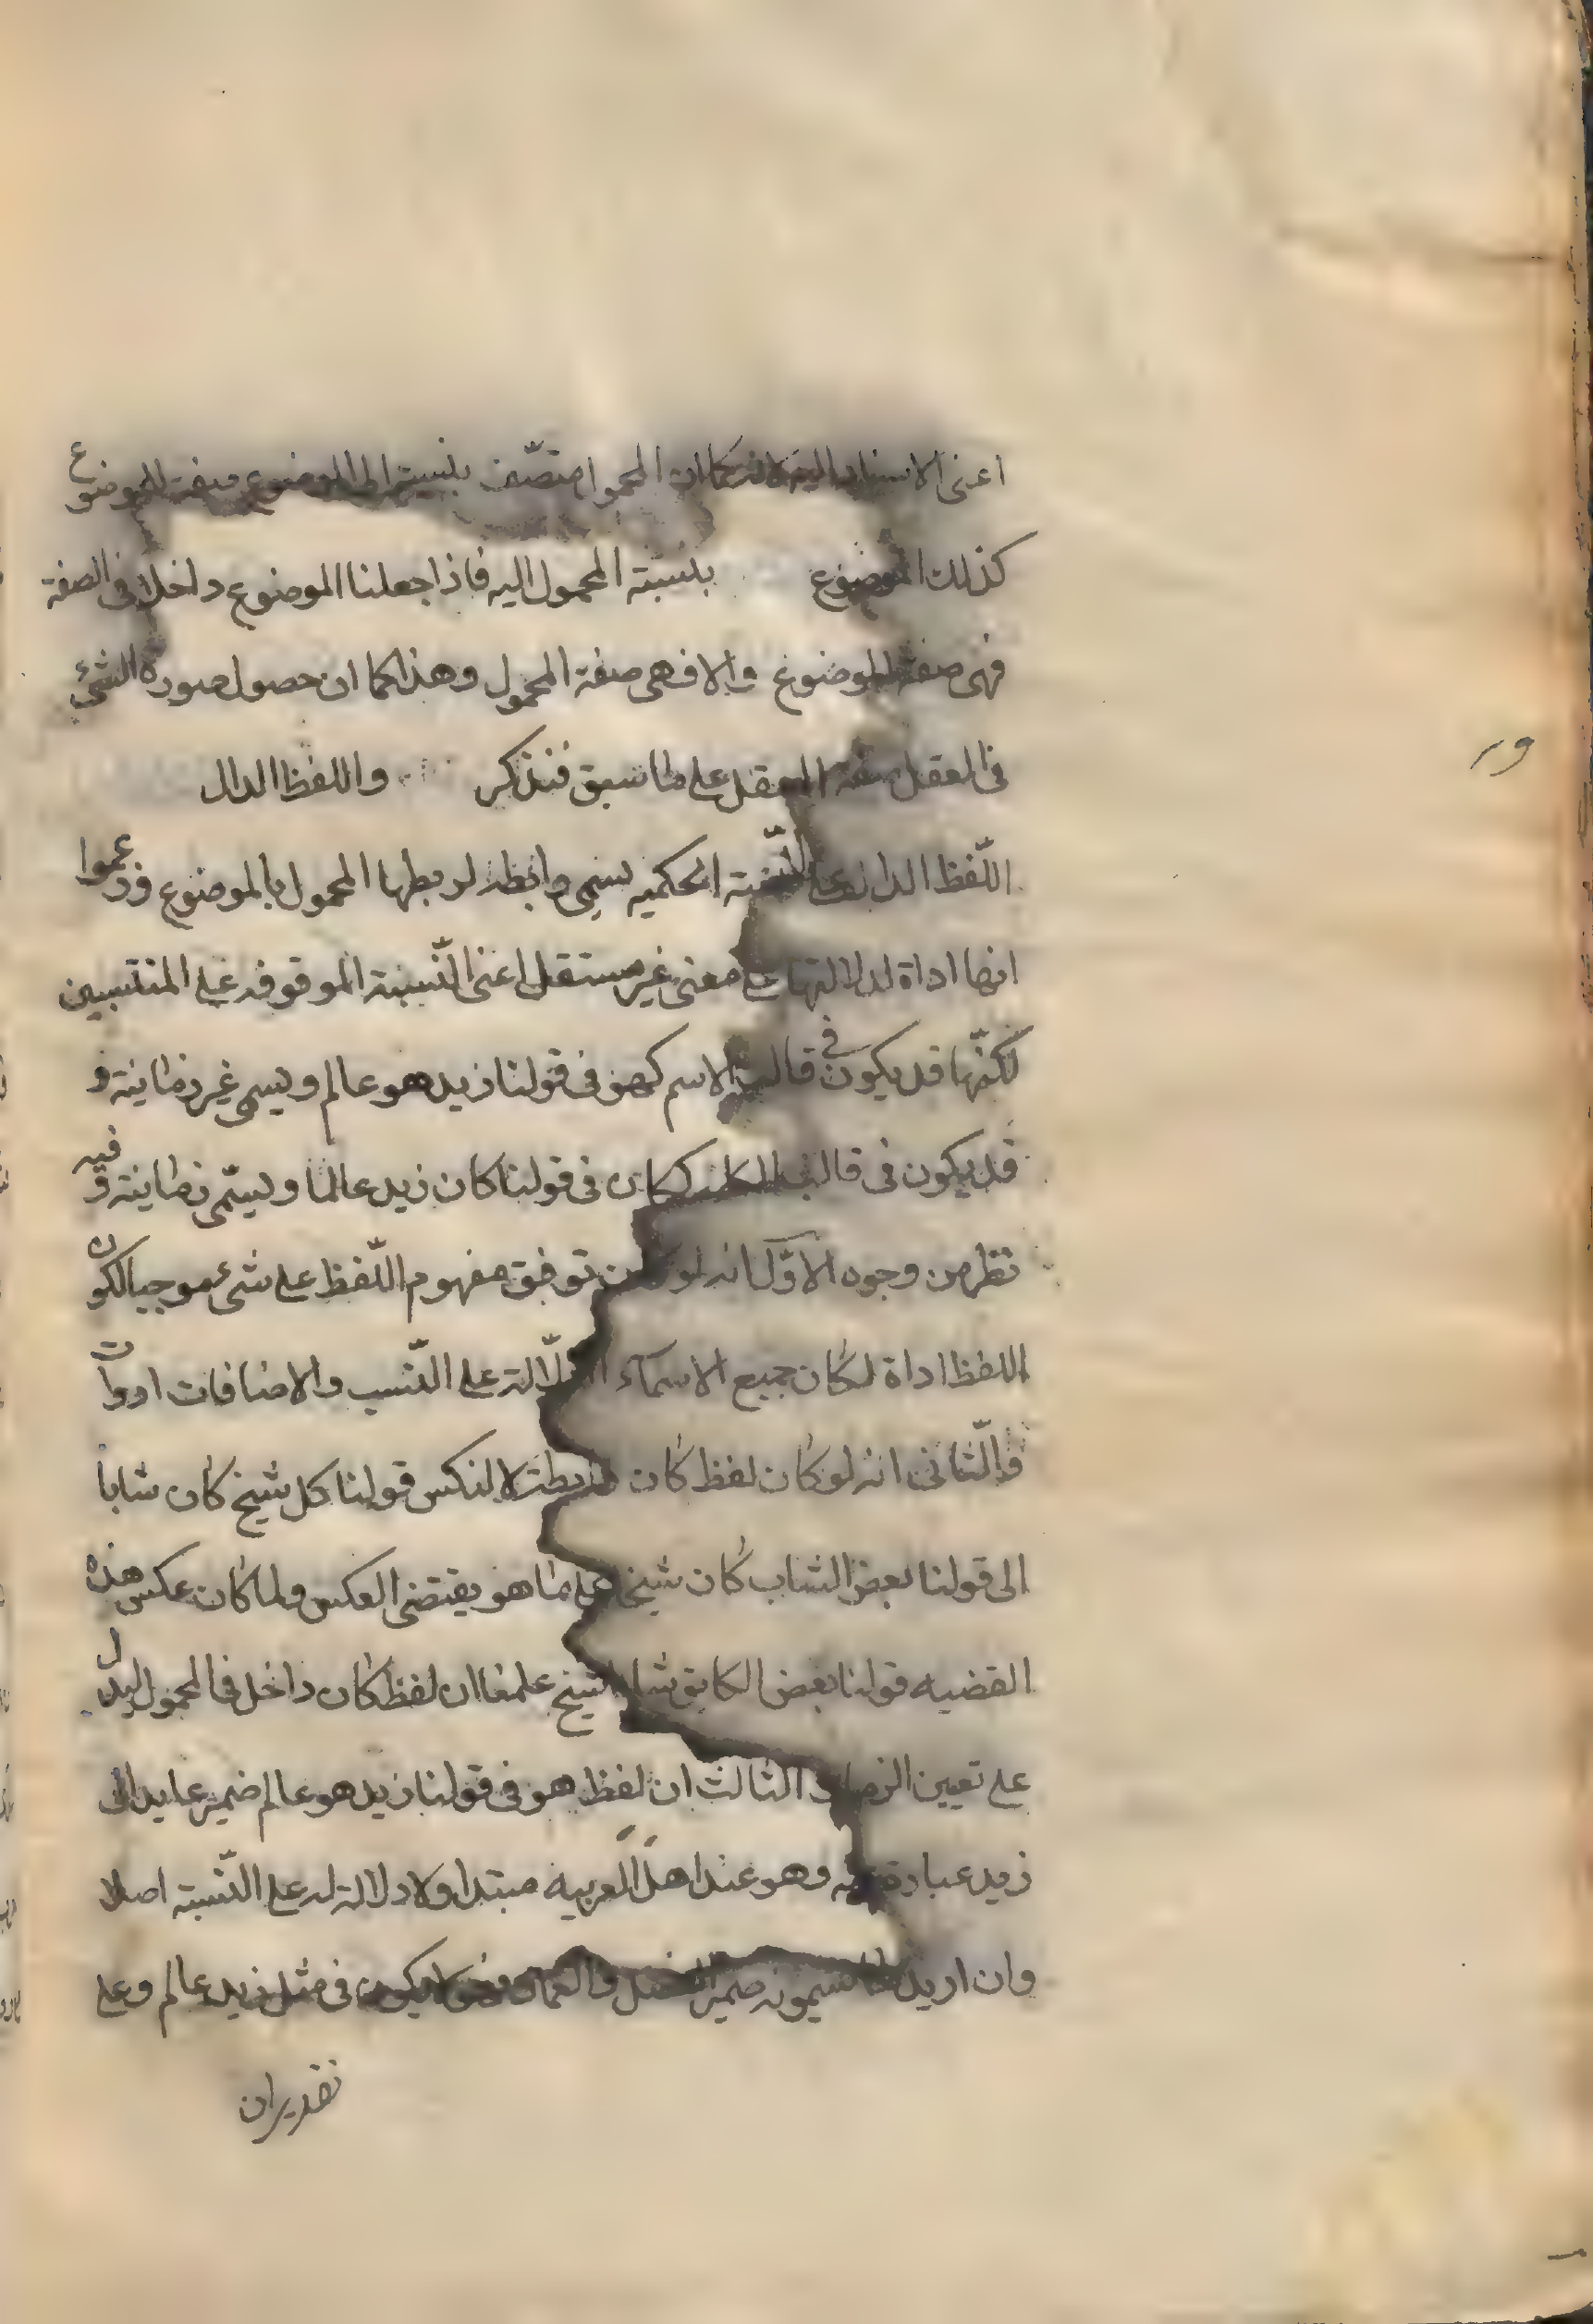 اعنى الاسناد اليه لانه كما ان المحمول متصف بنسبته الى الموضوع صفة للموضوع
كذلك الموضوع بنسبة المحمول اليه فاذا جعلنا الموضوع داخلا فى الصفة
فهى صفة الموضوع والا فهى صفة المحمول وهذا كما ان حصول صورة الشئ
فى العقل صفة العقل على ما سبق فتذكر واللفظ الدال
اللّفظ الدال على النّسبة الحكميه يسمى رابطة لربطها المحمول بالموضوع وزعموا
انها اداة لدلالتها على معنى غير مستقل اعنى النّسبة الموقوفه على المنتسبين
لكنّها قد يكون فى قالب الاسم كهو فى قولنا زيد هو عالم ويسمى غير زمانية و
قد يكون فى قالب الكلمة ككان فى قولنا كان زيد عالما ويسمّى زمانية وفيه
نظر من وجوه الاوّل انه لو كان توقف مفهوم اللّفظ على شئ موجبا لكون
اللفظ اداة لكان جميع الاسمآء الدّالة على النّسب والاضافات ادوات
والثّانى انه لو كان لفظ كان رابطة لانعكس قولنا كل شيخ كان شابا
الى قولنا بعض الشاب كان شيخا على ما هو يقتضى العكس ولما كان عكس هذه
القضيه قولنا بعض الكاين شابا شيخ علمنا ان لفظ كان داخل فى المحمول ليدل
على تعيين الزمان الثالث ان لفظ هو فى قولنا زيد هو عالم ضمير عايد الى
زيد عبارة عنه وهو عند اهل العربيه مبتدا ولا دلالة له على النّسبة اصلا
وان اريد ما يسمونه ضمير الفصل والعماد فهو لا يكون فى مثل زيد عالم وعلى
تقديران